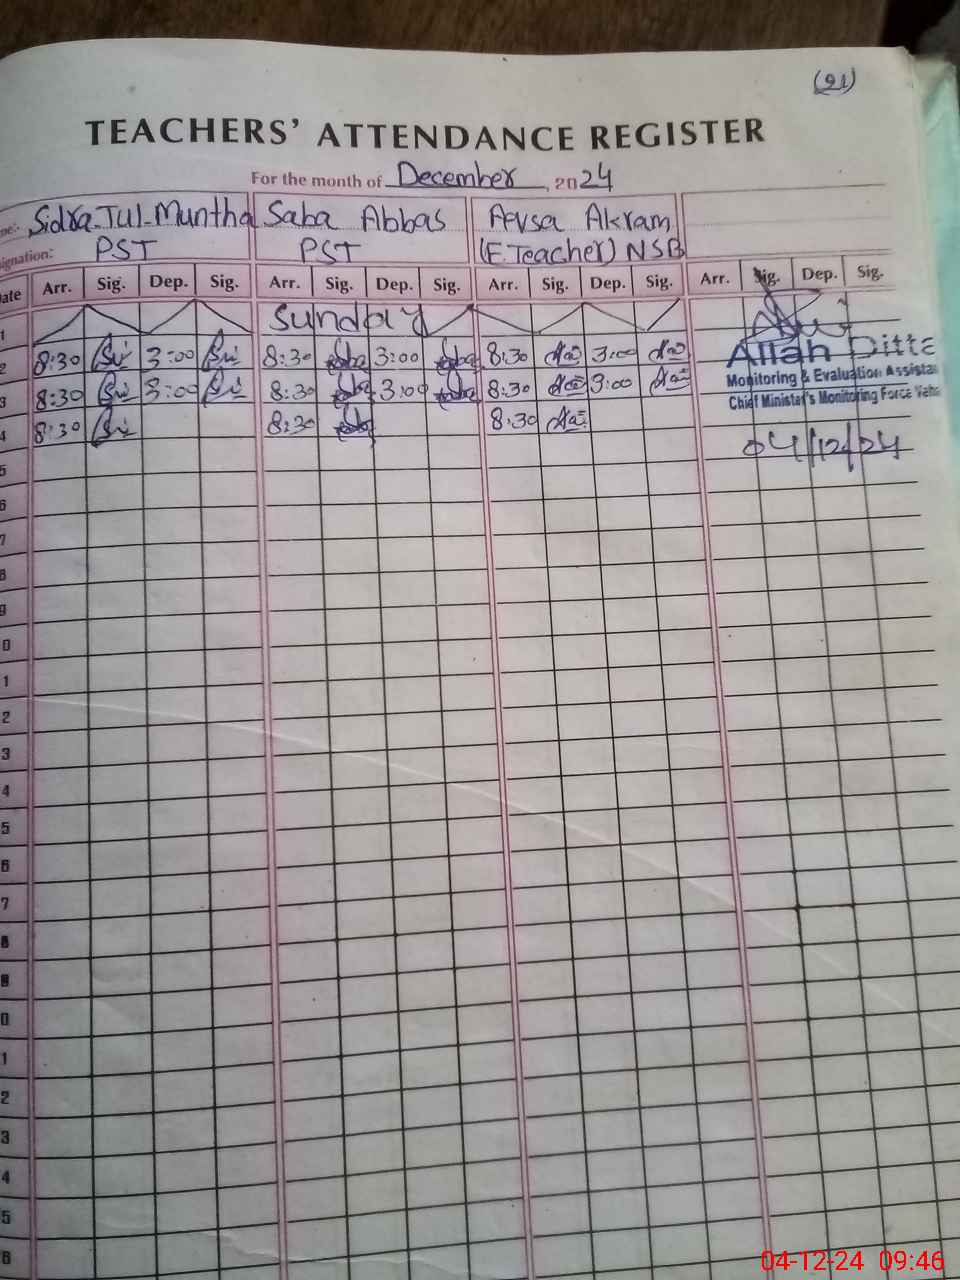 (21)
TEACHERS' ATTENDANCE REGISTER
For the month of December, 2024
me:- Sidra-Tul-Muntha Saba Abbas Aevsa Akram
signation: PST PST (E.Teacher) NSB
Date Arr. Sig. Dep. Sig. Arr. Sig. Dep. Sig. Arr. Sig. Dep. Sig. Arr. Sig. Dep. Sig.
1 Sunday
2 8:30 3:00 8:30 3:00 8:30 3:00
Allah Ditta
3 8:30 3:00 8:30 3:00 8:30 3:00
Monitoring & Evaluation Assista
Chief Minister's Monitoring Force Veha
4 8:30 8:30 8:30
04/12/24
5
6
7
8
9
0
1
2
3
4
5
6
7
8
9
0
1
2
3
4
5
6
04-12-24 09:46